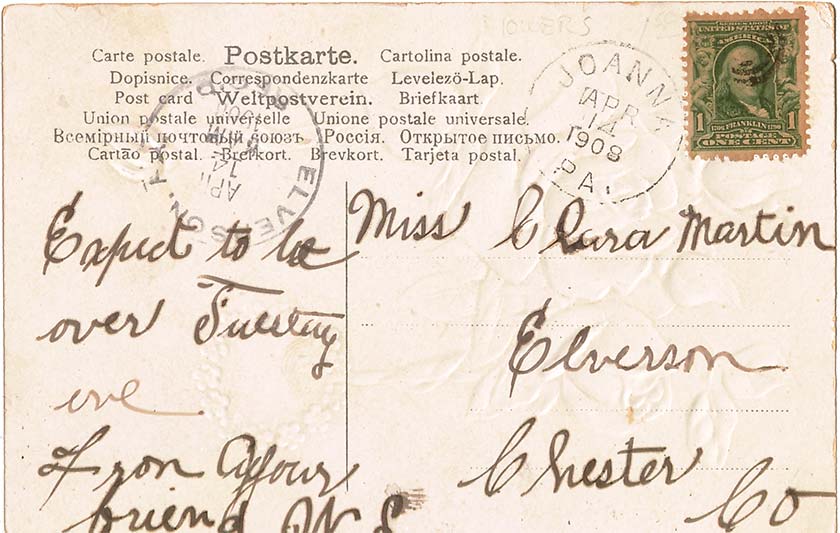 FLOWERS
Carte postale. Postkarte. Cartolina postale.
Dopisnice. Correspondenzkarte Levelezö-Lap.
Post card Weltpostverein. Briefkaart.
Union postale universelle Unione postale universale.
Всемірный почтовый союзъ Россія. Открытое письмо.
Cartão postal. Brefkort. Brevkort. Tarjeta postal.
ELVERSON, PA.
APR
14
JOANNA
APR
14
1908
PA.
UNITED STATES OF AMERICA
1706 FRANKLIN 1790
1 POSTAGE 1
ONE CENT
Expect to be
over Tuesday
eve
From Your
friend
Miss Clara Martin
Elverson
Chester
Co